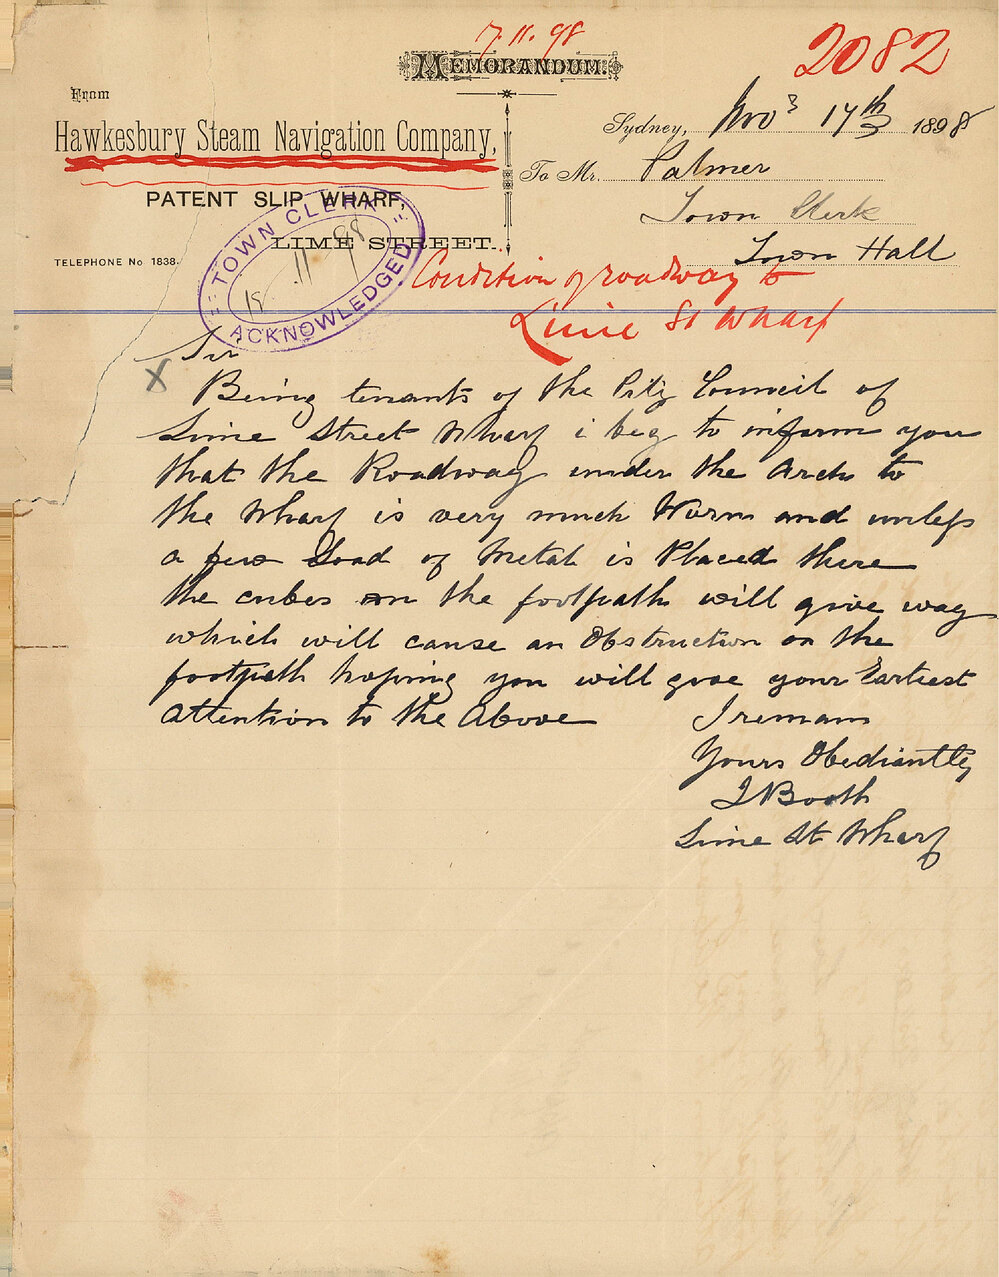 7.11.98
2082
MEMORANDUM.
From
Hawkesbury Steam Navigation Company,
PATENT SLIP WHARF,
LIME STREET.
TELEPHONE No 1838.
Sydney, Nov 17th 1898
To Mr. Palmer
Town Clerk
Town Hall
TOWN CLERK
ACKNOWLEDGED
Condition of roadway to
Lime St Wharf
Sir
X
Being tenants of the City Council of
Lime Street Wharf i beg to inform you
that the Roadway under the Arch to
the Wharf is very much Worn and unless
a few Load of Metal is Placed there
the cubes on the footpath will give way
which will cause an Obstruction on the
footpath hoping you will give your Earliest
Attention to the Above
I remain
Yours Obediantly
J Booth
Lime St Wharf